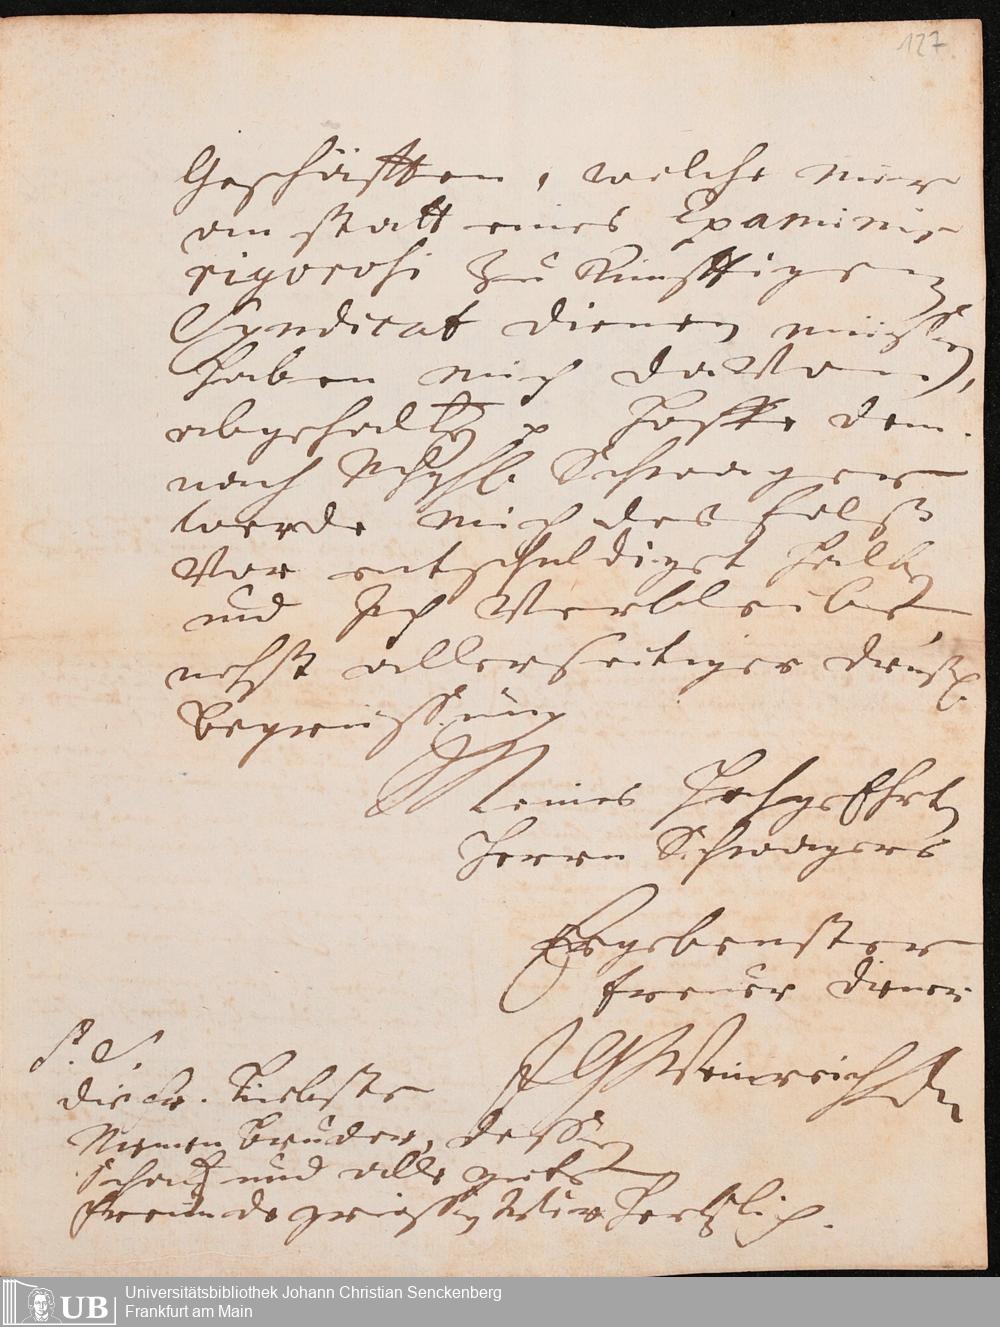 127.
Geschäfften, welche mir
an statt eines Examinis
rigorosi zu Künfftigem
Syndicat dienen müssen,
haben mich davon
abgehalten p Hoffe dem-
nach Schwager
werde mich deß falß
vor entschuldiget halten
und Ich Verbleibe
nebst allerseitiger dienstl.
Begrüssung
Meines HochgeEhrten
Herrn Schwagers
Ergebenster
treuer diener
P. S.
die Liebste
Meinen Bruder, dessen
Schatz und alle gute
Freunde grüssen Wir Hertzlich.
UB Universitätsbibliothek Johann Christian Senckenberg
Frankfurt am Main